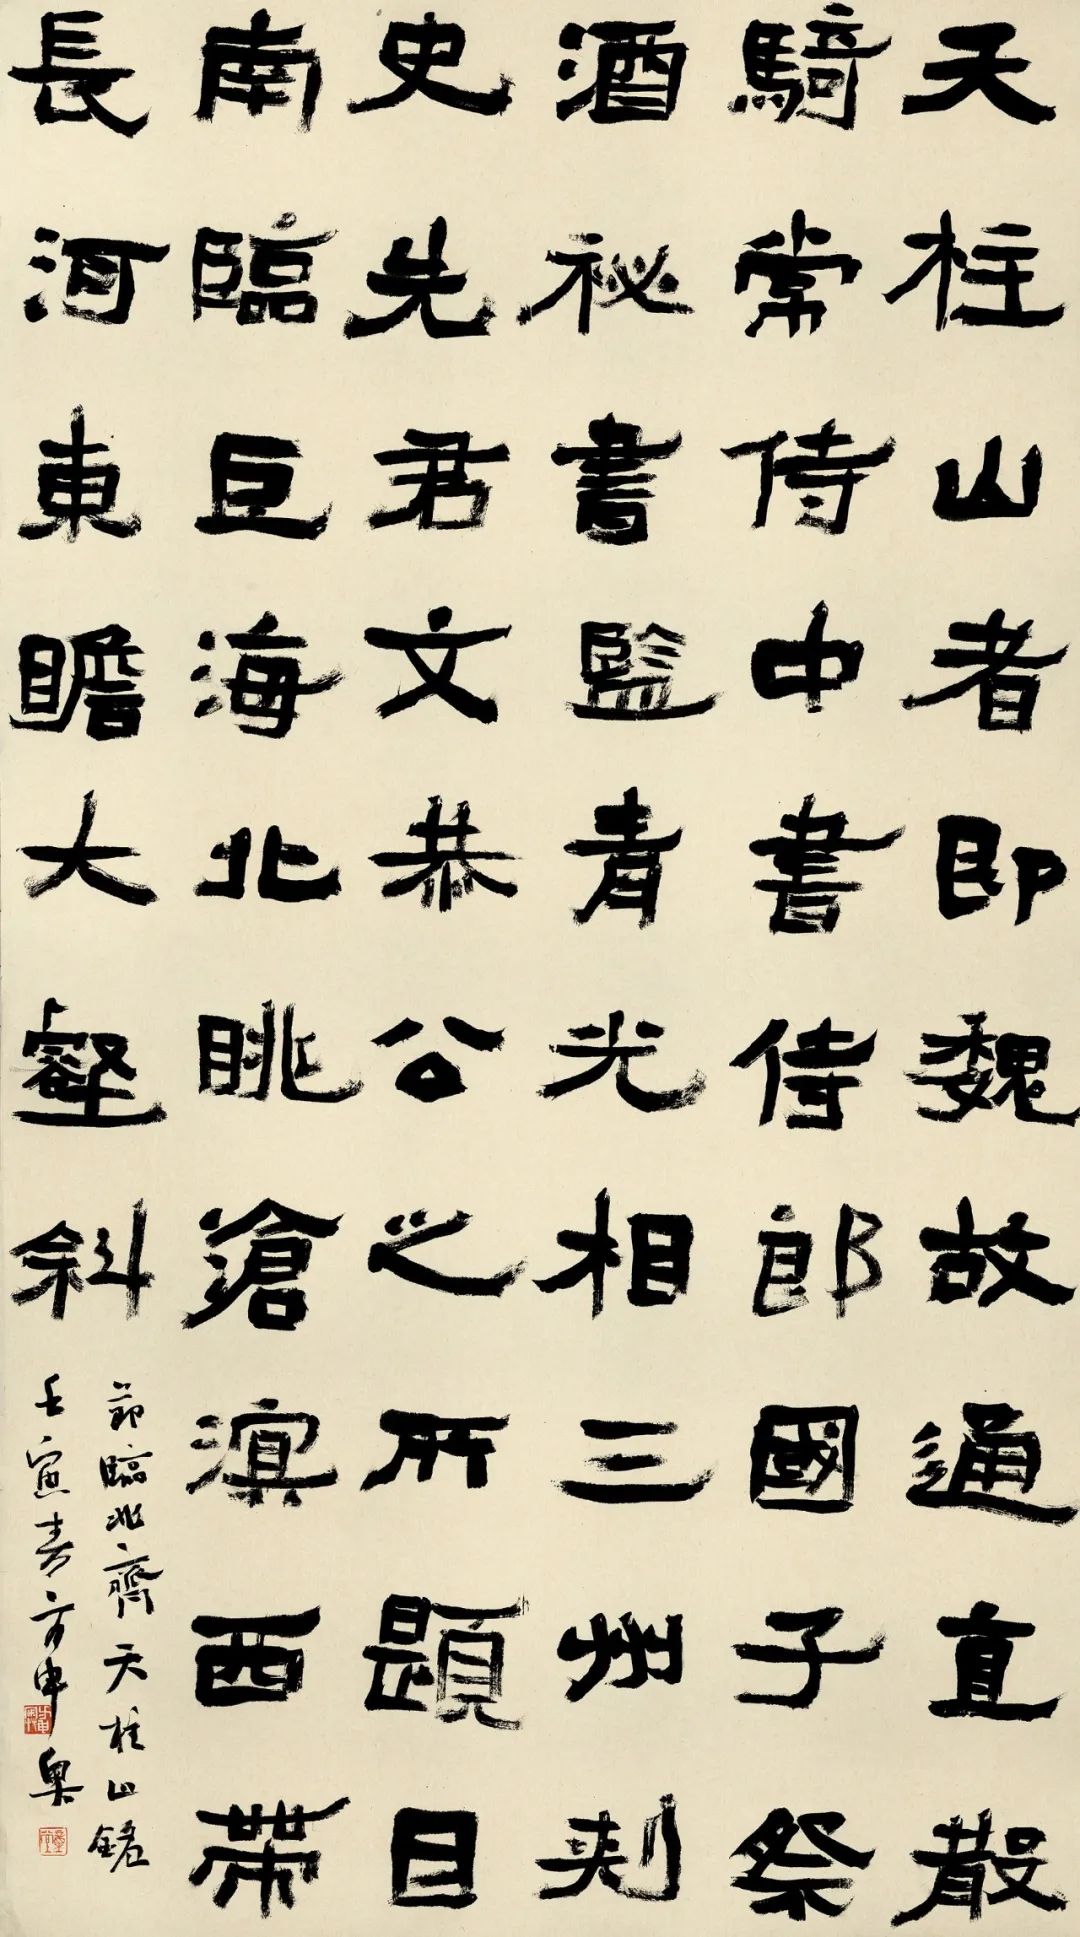 天柱山者即魏故通直散
騎常侍中書侍郎國子祭
酒祕書監青光相三州刺
史先君文恭公之所題目
南臨巨海北眺滄溟西帶
長河東瞻大壑斜
節臨北齊天柱山銘
壬寅春方申